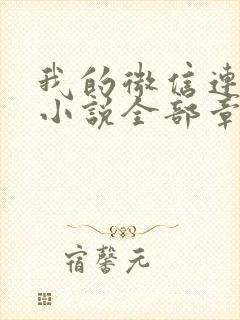 我的微信連
小說全部章
宿馨元